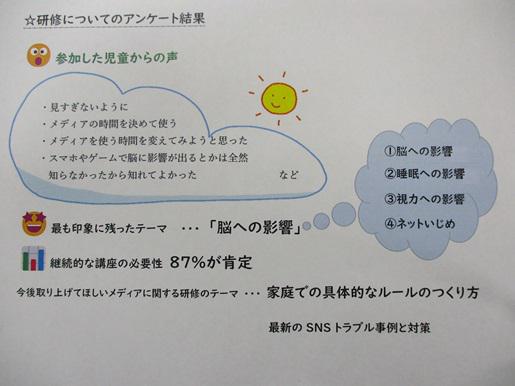 ☆研修についてのアンケート結果
参加した児童からの声
・見すぎないように
・メディアの時間を決めて使う
・メディアを使う時間を変えてみようと思った
・スマホやゲームで脳に影響が出るとかは全然
知らなかったから知れてよかった　など
①脳への影響
②睡眠への影響
③視力への影響
④ネットいじめ
最も印象に残ったテーマ ･･･「脳への影響」
継続的な講座の必要性 87%が肯定
今後取り上げてほしいメディアに関する研修のテーマ ･･･ 家庭での具体的なルールのつくり方
最新の SNS トラブル事例と対策